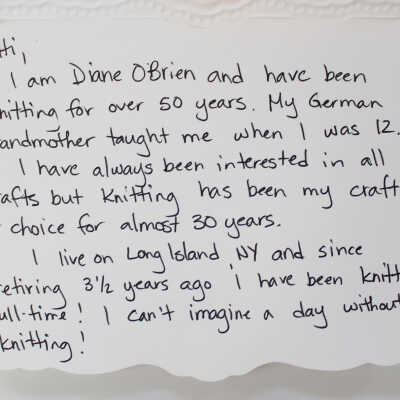 Hi,
I am Diane O'Brien and have been
knitting for over 50 years. My German
grandmother taught me when I was 12.
I have always been interested in all
crafts but knitting has been my craft
of choice for almost 30 years.
I live on Long Island, NY and since
retiring 3 1/2 years ago i have been knitt
full-time! I can't imagine a day without
knitting!